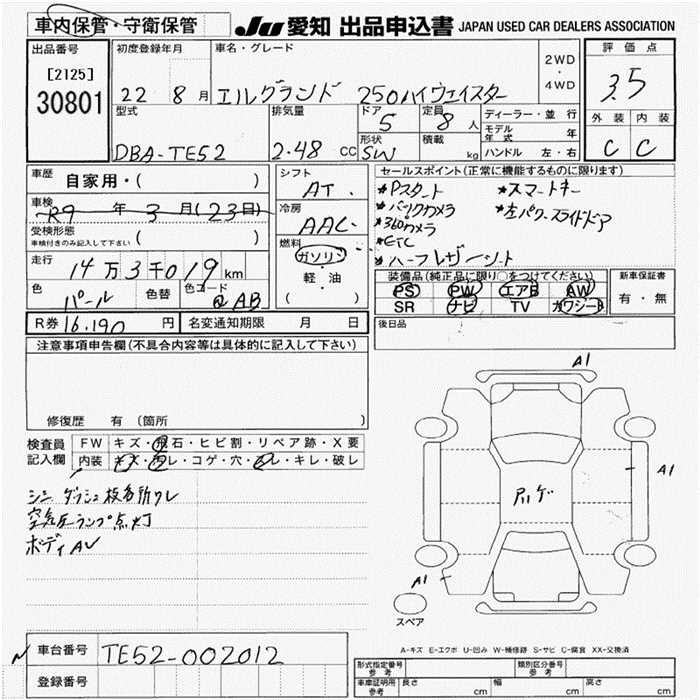 車内保管・守衛保管
JU 愛知 出品申込書 JAPAN USED CAR DEALERS ASSOCIATION
出品番号 初度登録年月 車名・グレード 評価点
[2125] 2WD・4WD
30801 22 年 8 月 エルグランド 250ハイウェイスター 3.5
型式 排気量 ドア 5 定員 8 人 ディーラー・並行 外装 内装
モデル年式 年
DBA-TE52 2.48 CC 形状 SW 積載 kg ハンドル 左・右 C C
車歴 自家用・( ) シフト AT. セールスポイント(正常に機能するものに限ります)
*Pスタート *スマートキー
車検 R9 年 3 月(23日) 冷房 AAC *バックカメラ *左パワースライドドア
*360カメラ
受検形態 車検付きのみ記入して下さい ( ) 燃料 ガソリン *ETC
*ハーフレザーシート
走行 14万3千019 km 軽・油 装備品(純正品に限り○をつけてください) 新車保証書
PS PW エアB AW 有・無
色 パール 色替 色コード QAB ( ) SR ナビ TV カワシート
R券 16.190 円 名変通知期限 月 日 後日品
注意事項申告欄(不具合内容等は具体的に記入して下さい)
修復歴 有 (箇所 )
検査員記入欄 FW キズ・飛石・ヒビ割・リペア跡・X要
内装 キズ・汚レ・コゲ・穴・スレ・キレ・破レ
シン ダッシュ 枝多所クレ
空気圧ランプ点灯
ボディAU
A1
A1
アリゲ
A1
スペア
A-キズ E-エクボ U-凹み W-補修跡 S-サビ C-腐食 XX-交換済
車台番号 TE52-002012
登録番号
形式指定番号 参考 類別区分番号 参考
車庫証明用 参考 長さ cm 幅 cm 高さ cm